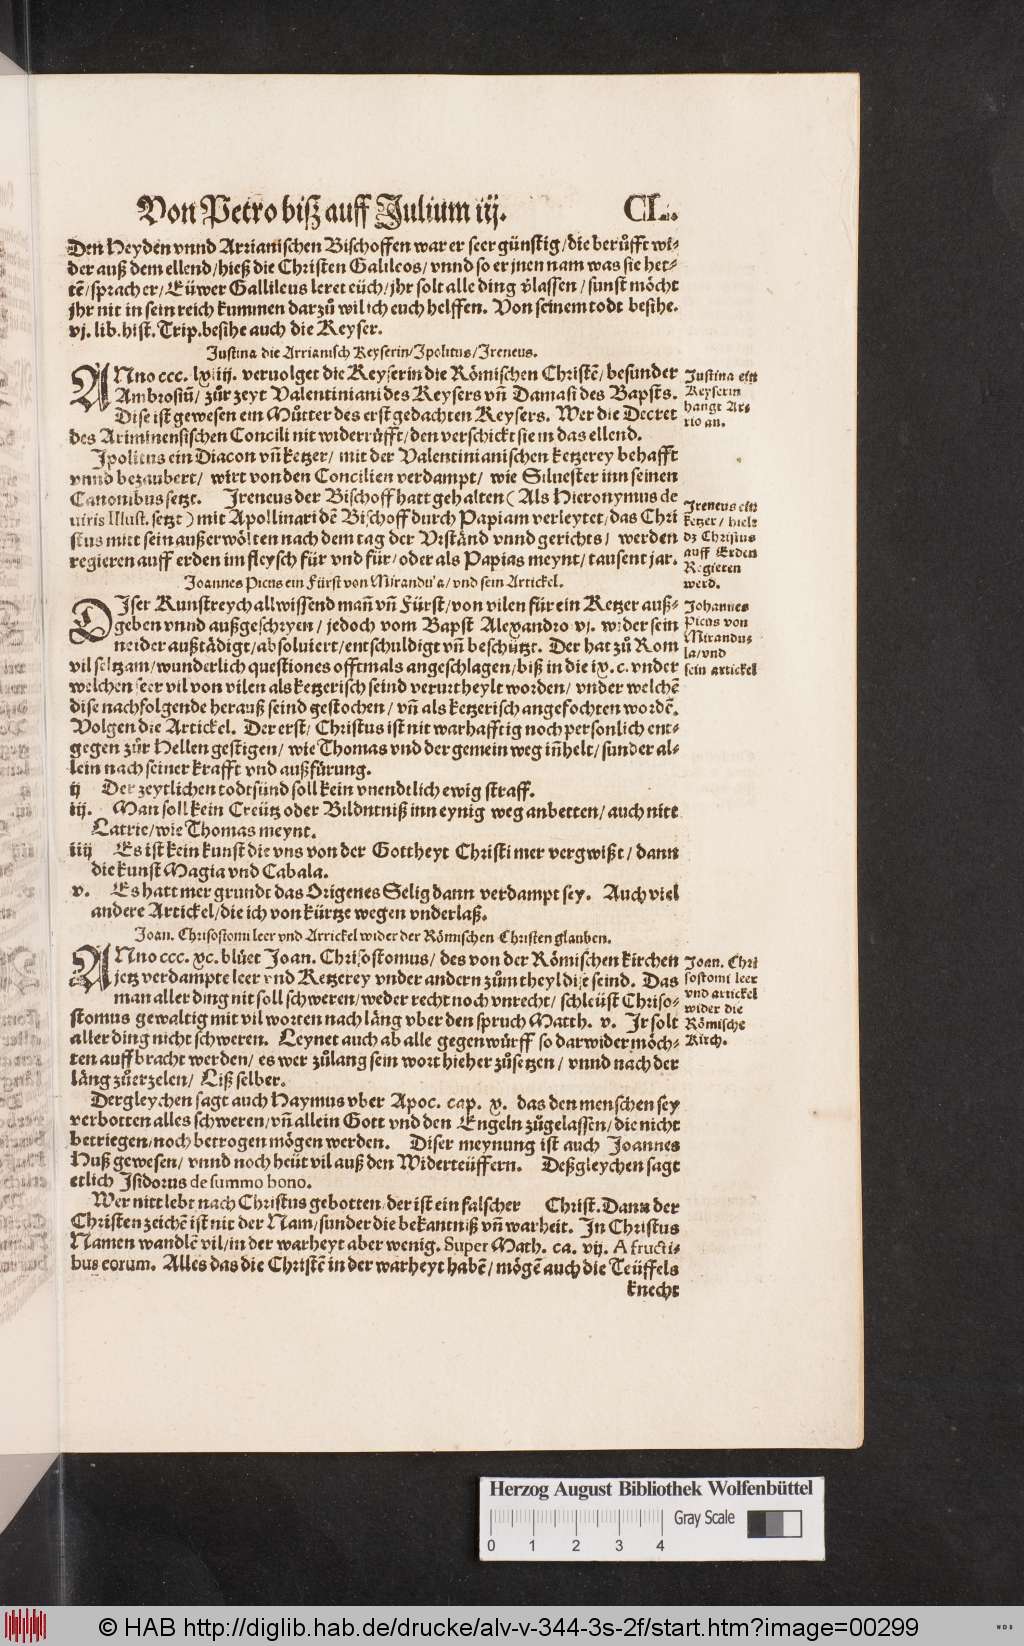 Von Petro biß auff Julium iij. CL.
Den Heyden vnnd Arrianischen Bischoffen war er seer günstig/die berůfft wi-
der auß dem ellend/hieß die Christen Galileos/vnnd so er jnen nam was sie het-
tẽ/sprach er/Eüwer Gallileus leret eüch/jhr solt alle ding v̈lassen/sunst möcht
jhr nit in sein reich kummen darzů wil ich euch helffen. Von seinem todt besihe.
vj. lib. hist. Trip. besihe auch die Keyser.
Justina die Arrianisch Keyserin/Ipolitus/Ireneus.
ANno ccc. lxiiij. veruolget die Keyserin die Römischen Christẽ/besunder
Ambrosiũ/zůr zeyt Valentiniani des Keysers vñ Damasi des Bapsts.
Dise ist gewesen ein Můtter des erst gedachten Keysers. Wer die Decret
des Ariminensischen Concili nit widerrůfft/den verschickt sie in das ellend.
Justina ein
Keyserin
hangt Ar-
rio an.
Ipolitus ein Diacon vñ ketzer/mit der Valentinianischen ketzerey behafft
vnnd bezaubert/wirt von den Concilien verdampt/wie Siluester inn seinen
Canonibus setzt. Ireneus der Bischoff hatt gehalten (Als Hieronymus de
uiris Illust. setzt) mit Apollinari dẽ Bischoff durch Papiam verleytet/das Chri
stus mitt sein außerwölten nach dem tag der Vrständ vnnd gerichts/werden
regieren auff erden im fleysch für vnd für/oder als Papias meynt/tausent jar.
Ireneus ein
ketzer/hielt
dz Christus
auff Erden
Regieren
werd.
Joannes Picus ein Fürst von Mirandula/vnd sein Artickel.
DIser Kunstreych allwissend mañ vñ Fürst/von vilen für ein Ketzer auß-
geben vnnd außgeschryen/jedoch vom Bapst Alexandro vj. wider sein
neider außtädigt/absoluiert/entschuldigt vñ beschützt. Der hat zů Rom
vil seltzam/wunderlich questiones offtmals angeschlagen/biß in die ix. c. vnder
welchen seer vil von vilen als ketzerisch seind verurtheylt worden/vnder welchẽ
dise nachfolgende herauß seind gestochen/vñ als ketzerisch angefochten wordẽ.
Volgen die Artickel. Der erst/Christus ist nit warhafftig noch personlich ent-
gegen zůr Hellen gestigen/wie Thomas vnd der gemein weg iñhelt/sunder al-
lein nach seiner krafft vnd außfürung.
Johannes
Picus von
Mirandu-
la/vnd
sein artickel
ij Der zeytlichen todtsünd soll kein vnendtlich ewig straff.
iij. Man soll kein Creütz oder Bildntniß inn eynig weg anbetten/auch nitt
Latrie/wie Thomas meynt.
iiij Es ist kein kunst die vns von der Gottheyt Christi mer vergwißt/dann
die kunst Magia vnd Cabala.
v. Es hatt mer grundt das Origenes Selig dann verdampt sey. Auch viel
andere Artickel/die ich von kürtze wegen vnderlaß.
Joan. Chrisostomi leer vnd Arrickel wider der Römischen Christen glauben.
ANno ccc. xc. blüet Joan. Chrisostomus/des von der Römischen kirchen
jetz verdampte leer vnd Ketzerey vnder andern zům theyl dise seind. Das
man aller ding nit soll schweren/weder recht noch vnrecht/schleüst Chriso-
stomus gewaltig mit vil worten nach läng vber den spruch Matth. v. Ir solt
aller ding nicht schweren. Leynet auch ab alle gegenwürff so darwider möch-
ten auffbracht werden/es wer zůlang sein wort hieher zůsetzen/vnnd nach der
läng zůerzelen/Liß selber.
Joan. Chri
sostomi leer
vnd artickel
wider die
Römische
Kirch.
Dergleychen sagt auch Haymus vber Apoc. cap. x. das den menschen sey
verbotten alles schweren/vñ allein Gott vnd den Engeln zůgelassen/die nicht
betriegen/noch betrogen mögen werden. Diser meynung ist auch Joannes
Huß gewesen/vnnd noch heüt vil auß den Widerteüffern. Deßgleychen sagt
etlich Isidorus de summo bono.
Wer nitt lebt nach Christus gebotten/der ist ein falscher Christ. Dann der
Christen zeichẽ ist nit der Nam/sunder die bekantniß vñ warheit. In Christus
Namen wandlẽ vil/in der warheyt aber wenig. Super Math. ca. vij. A fructi-
bus eorum. Alles das die Christẽ in der warheyt habẽ/mögẽ auch die Teüffels
knecht
Herzog August Bibliothek Wolfenbüttel
Gray Scale
0 1 2 3 4
© HAB http://diglib.hab.de/drucke/alv-v-344-3s-2f/start.htm?image=00299